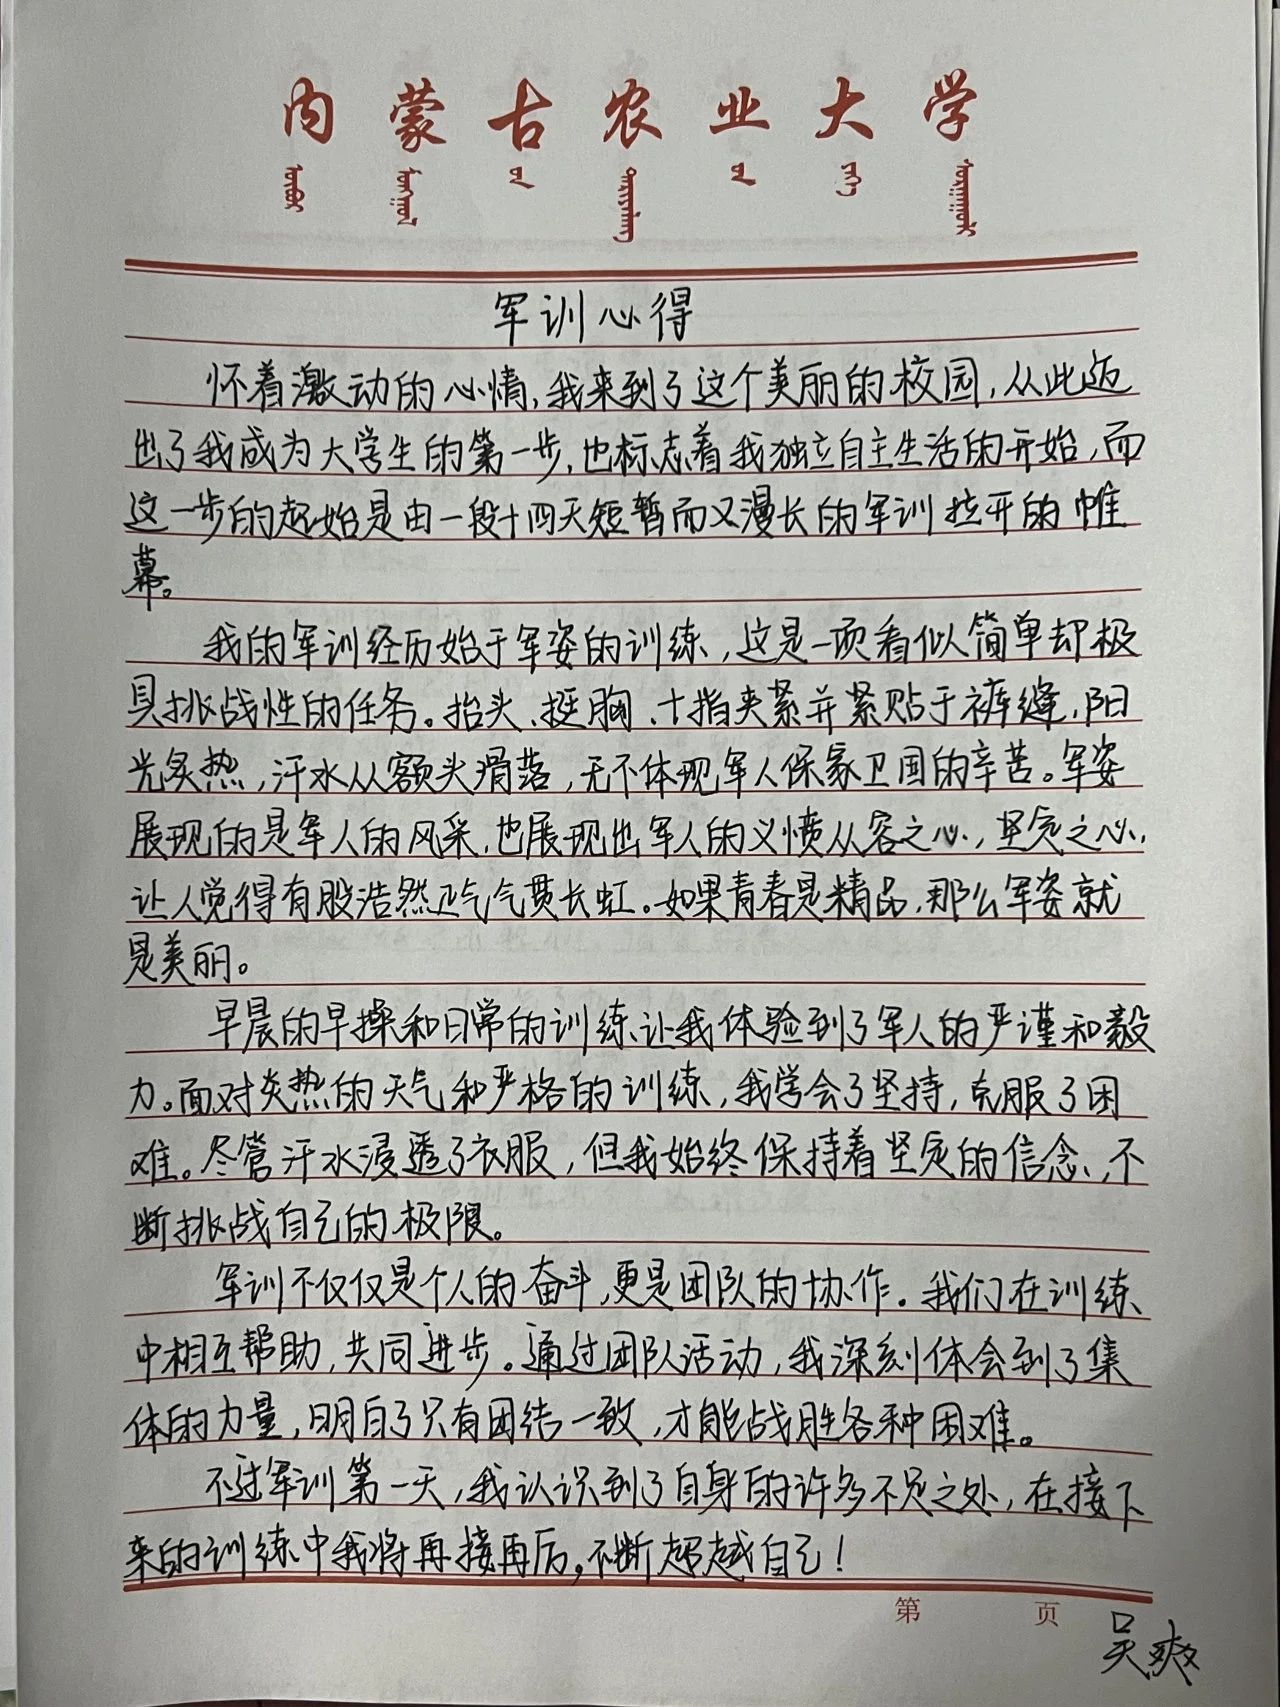 内蒙古农业大学
军训心得
怀着激动的心情,我来到了这个美丽的校园,从此迈
出了我成为大学生的第一步,也标志着我独立自主生活的开始,而
这一步的起始是由一段十四天短暂而又漫长的军训拉开的帷
幕。
我的军训经历始于军姿的训练,这是一项看似简单却极
具挑战性的任务。抬头、挺胸、十指夹紧并紧贴于裤缝,阳
光炙热,汗水从额头滑落,无不体现军人保家卫国的辛苦。军姿
展现的是军人的风采,也展现出军人的义愤从容之心,坚定之心,
让人觉得有股浩然正气气贯长虹。如果青春是精品,那么军姿就
是美丽。
早晨的早操和日常的训练让我体验到了军人的严谨和毅
力。面对炎热的天气和严格的训练,我学会了坚持,克服了困
难。尽管汗水浸透了衣服,但我始终保持着坚定的信念,不
断挑战自己的极限。
军训不仅仅是个人的奋斗,更是团队的协作。我们在训练
中相互帮助,共同进步。通过团队活动,我深刻体会到了集
体的力量,明白了只有团结一致,才能战胜各种困难。
不过军训第一天,我认识到了自身的许多不足之处,在接下
来的训练中我将再接再厉,不断超越自己!
第 页
吴爽